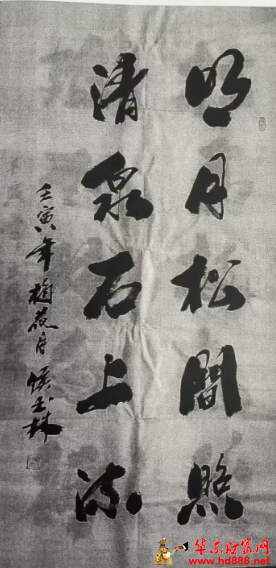 明月松間照
清泉石上流
壬寅年梅花月 侯玉林
华东财富网
www.hd888.net